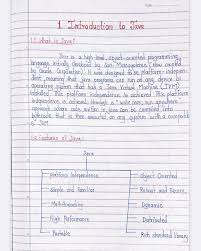 1. Introduction to Java
1.1 What is Java?
Java is a high-level, object-oriented programming
language initially developed by Sun Microsystems (Now owned
by Oracle Corporation). It was designed to be platform-independ-
ent, meaning that Java programs can run on any device or
operating system that has a Java Virtual Machine (JVM)
installed. This platform independence is achieved This platform
independence is achieved through a "write once, run anywhere"
approach where code written in Java can be compiled into
bytecode that is then executed on any system with a compatibl
e JVM
1.2 Features of Java:
Java
platform Independence
Object Oriented
Simple and Familiar
Robust and Secure
Multithreading
Dynamic
High Performance
Distributed
Portable
Rich standard library